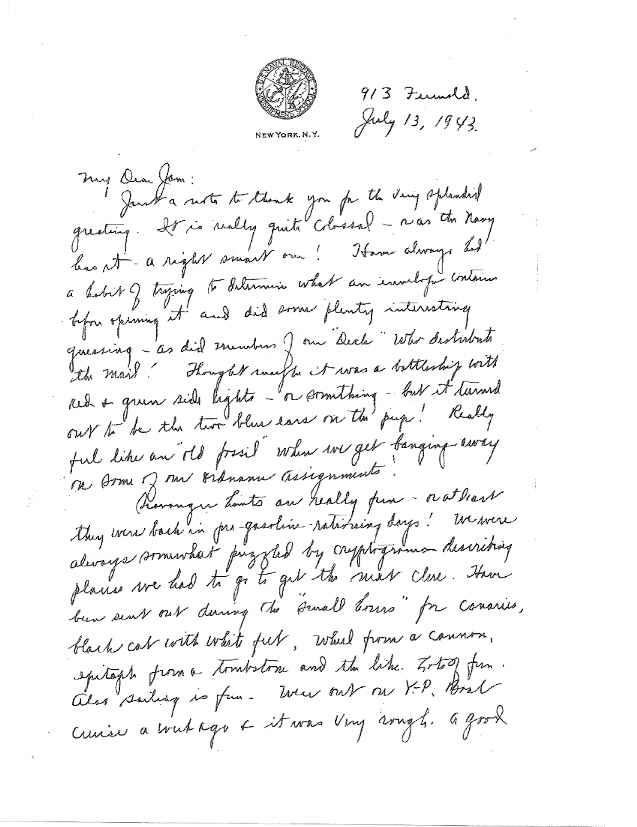 U.S. NAVAL RESERVE
MIDSHIPMEN'S SCHOOL
NEW YORK, N.Y.
913 Furnald.
July 13, 1943.
My Dear Jam:
Just a note to thank you for the very splendid
greeting. It is really quite colossal – as the Navy
has it – a right smart one! Have always had
a habit of trying to determine what an envelope contains
before opening it and did some plenty interesting
guessing – as did members of our "Deck" who distribute
the mail! Thought maybe it was a battleship with
red & green side lights – or something – but it turned
out to be the two blue ears on the pup! Really
feel like an "old fossil" when we get banging away
on some of our ordnance assignments!
Scavenger hunts are really fun – or at least
they were back in pre-gasoline-rationing days! We were
always somewhat puzzled by cryptograms describing
places we had to go to get the next clue. Have
been sent out during the "small hours" for canaries,
black cat with white feet, wheel from a cannon,
epitaph from a tombstone and the like. Lots of fun.
Also sailing is fun. Were out on Y-P. Boat
cruise a week ago & it was very rough. A good